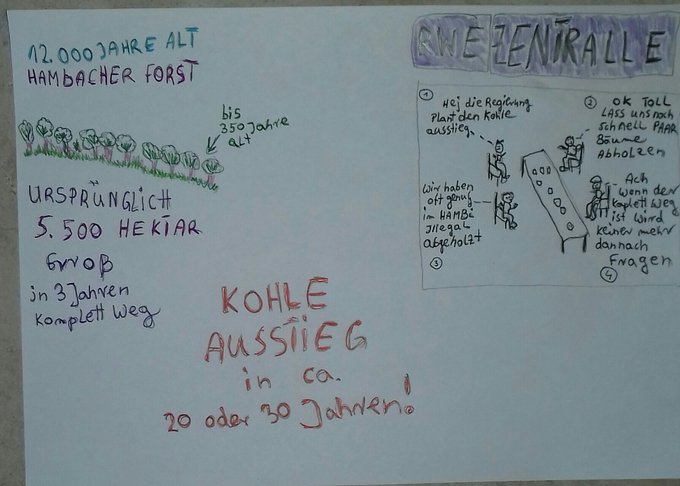 12.000 JAHRE ALT
HAMBACHER FORST
bis
350 Jahre
alt
URSPRÜNGLICH
5.500 HEKTAR
Grroß
in 3 Jahren
Komplett Weg
KOHLE
AUSSTIEG
in ca.
20 oder 30 Jahren!
RWE ZENTRALLE
①
Hej die Regierung
Plant den Kohle
ausstieg
②
OK TOLL
LASS uns noch
schnell PAAR
Bäume
Abholzen
Wir haben
oft genug
im HAMBI
Illegal
abgeholzt
③
Ach
wenn der
Komplett Weg
ist wird
keiner mehr
dannach
Fragen
④